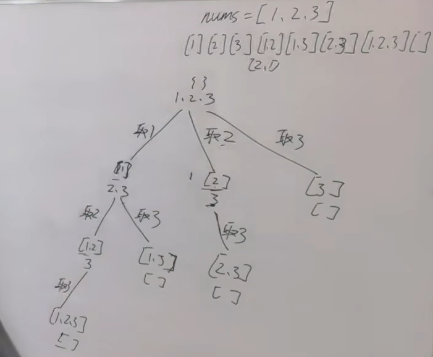 nums = [1, 2, 3]
[1] [2] [3] [1,2] [1,3] [2,3] [1,2,3] [ ]
[2,1)
{ }
1, 2, 3
取1 取2 取3
[1] 1 [2] [3]
2, 3 3 [ ]
取2 取3 取3
[1,2] [1,3] [2,3]
3 [ ] [ ]
取3
[1,2,3]
[ ]